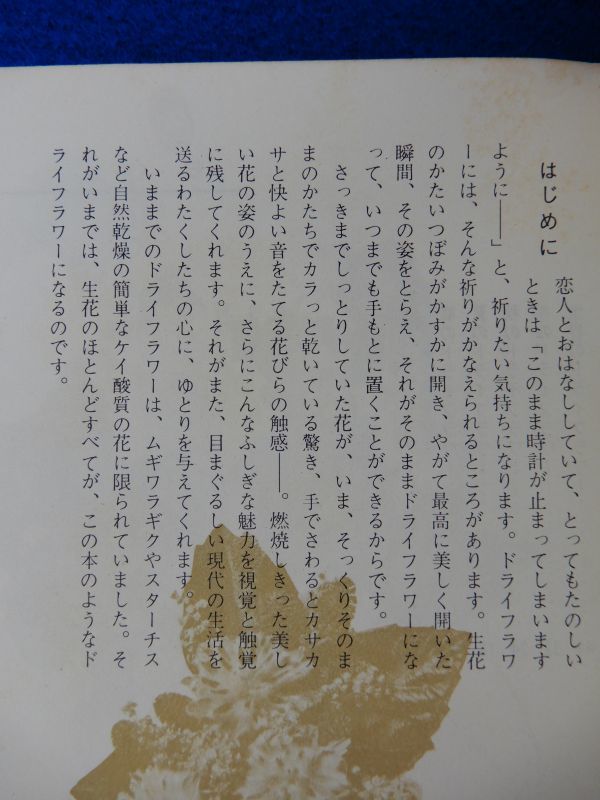 はじめに
恋人とおはなししていて、とってもたのしい
ときは「このまま時計が止まってしまいます
ように――」と、祈りたい気持ちになります。ドライフラワ
ーには、そんな祈りがかなえられるところがあります。生花
のかたいつぼみがかすかに開き、やがて最高に美しく開いた
瞬間、その姿をとらえ、それがそのままドライフラワーにな
って、いつまでも手もとに置くことができるからです。
さっきまでしっとりしていた花が、いま、そっくりそのま
まのかたちでカラっと乾いている驚き、手でさわるとカサカ
サと快よい音をたてる花びらの触感――。燃焼しきった美し
い花の姿のうえに、さらにこんなふしぎな魅力を視覚と触覚
に残してくれます。それがまた、目まぐるしい現代の生活を
送るわたくしたちの心に、ゆとりを与えてくれます。
いままでのドライフラワーは、ムギワラギクやスターチス
など自然乾燥の簡単なケイ酸質の花に限られていました。そ
れがいまでは、生花のほとんどすべてが、この本のようなド
ライフラワーになるのです。